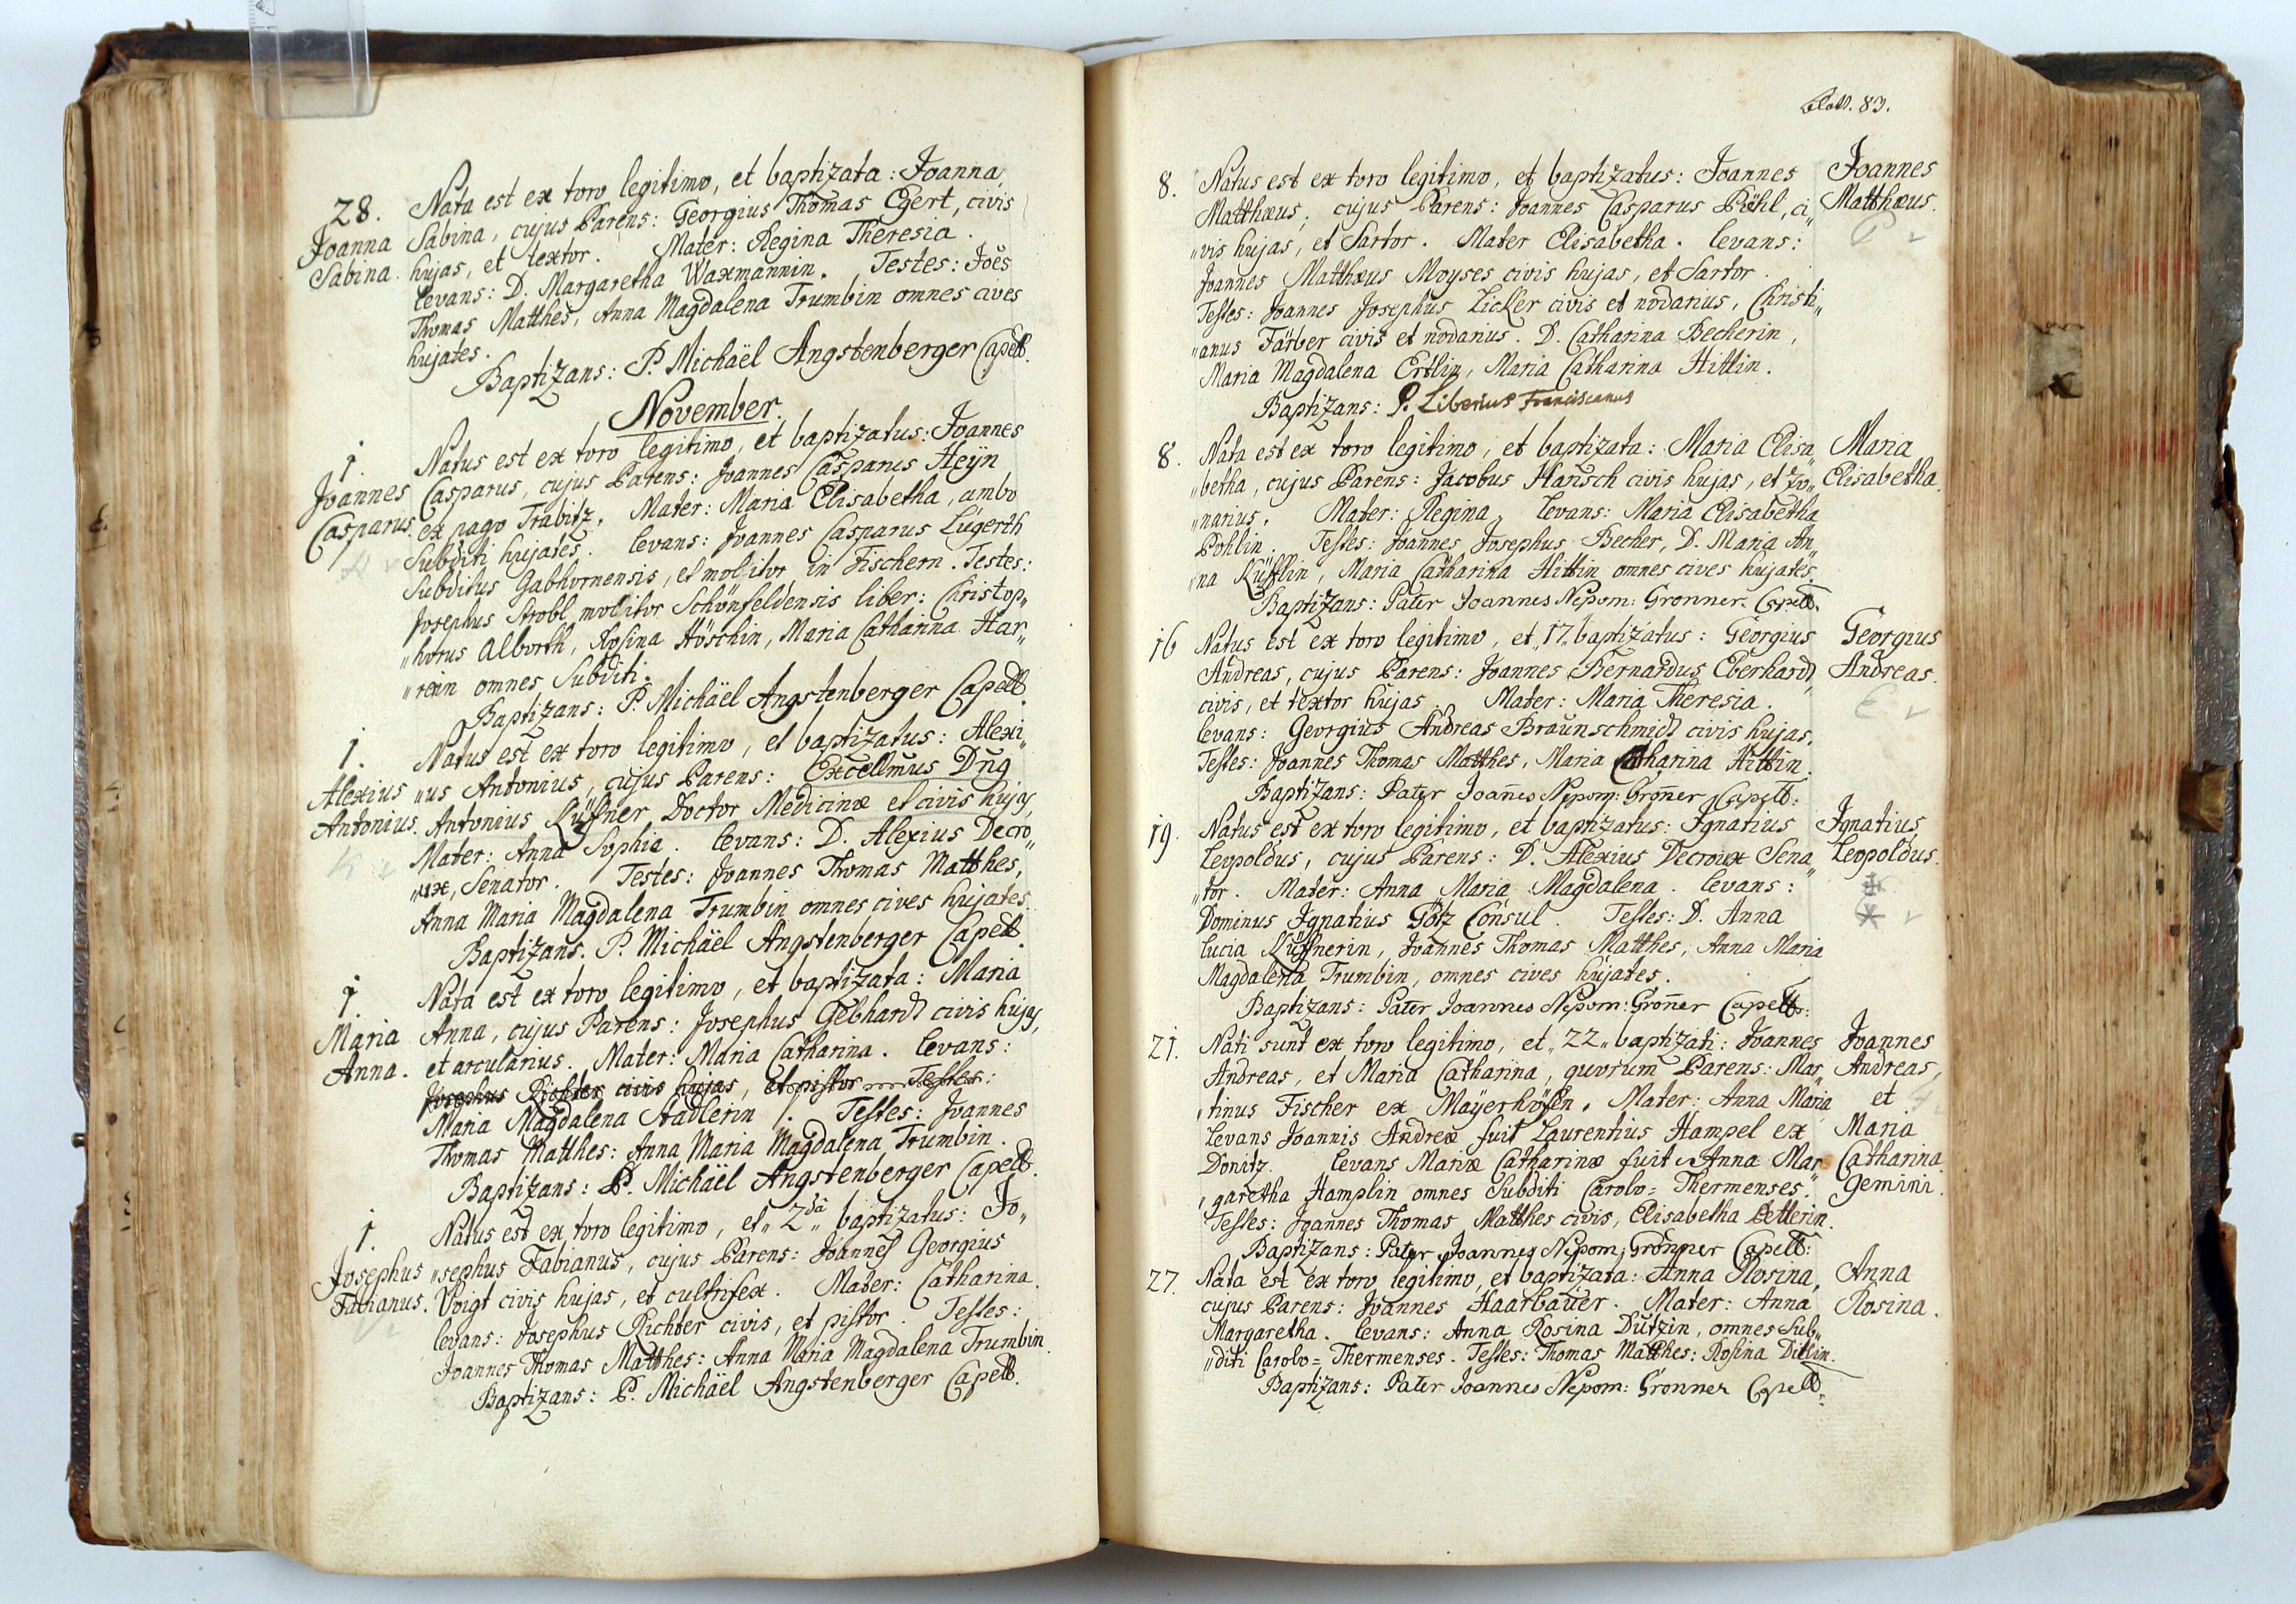 28.
Joanna
Sabina.
Nata est ex toro legitimo, et baptizata: Joanna
Sabina, cujus Parens: Georgius Thomas Egert, civis
hujas, et textor. Mater: Regina Theresia.
levans: D. Margaretha Waxmannin. Testes: Joes
Thomas Matthes, Anna Magdalena Trumbin omnes cives
hujates.
Baptizans: P. Michaël Angstenberger Capell.
November.
1.
Joannes
Casparus.
Natus est ex toro legitimo, et baptizatus: Joannes
Casparus, cujus Parens: Joannes Casparus Heÿn
ex pago Trabitz. Mater: Maria Elisabetha, ambo
Subditi hujates. levans: Joannes Casparus Lugerth
Subditus Gabhornensis, et molitor in Fischern. Testes:
Josephus Strobl molitor Schönfeldensis liber: Christop„
„horus Alborth, Rosina Höschin, Maria Catharina Har„
„rein omnes Subditi.
Baptizans: P. Michaël Angstenberger Capell.
1.
Alexius
Antonius.
Natus est ex toro legitimo, et baptizatus: Alexi„
„us Antonius, cujus Parens: Excellmus Dng
Antonius Küffner Doctor Medicinæ et civis hujg,
Mater: Anna Sophia. levans: D. Alexius Decro„
„ux, Senator. Testes: Joannes Thomas Matthes,
Anna Maria Magdalena Trumbin omnes cives hujates.
Baptizans. P. Michäel Angstenberger Capell.
1.
Maria
Anna.
Nata est ex toro legitimo, et baptizata: Maria
Anna, cujus Parens: Josephus Gebhardt civis hujg,
et arcularius. Mater: Maria Catharina. levans:
Josephus Richter civis hujas, et pistor Testes:
Maria Magdalena Stadlerin. Testes: Joannes
Thomas Matthes: Anna Maria Magdalena Trumbin.
Baptizans: P. Michäel Angstenberger Capell.
1.
Josephus
Fabianus.
Natus est ex toro legitimo, et „2da„ baptizatus: Jo„
„sephus Fabianus, cujus Parens: Joannes Georgius
Voigt civis hujas, et cultrifex. Mater: Catharina.
levans: Josephus Richter civis, et pistor. Testes:
Joannes Thomas Matthes: Anna Maria Magdalena Trumbin.
Baptizans: P. Michäel Angstenberger Capell.
blatt. 83.
8.
Natus est ex toro legitimo, et baptizatus: Joannes
Matthæus, cujus Parens: Joannes Casparus Pöhl, ci„
„vis hujas, et Sartor. Mater Elisabetha. levans:
Joannes Matthæus Moyses civis hujas, et Sartor.
Testes: Joannes Josephus Zicker civis et nodarius, Christi„
„anus Färber civis et nodarius. D. Catharina Becherin,
Maria Magdalena Ertlin, Maria Catharina Hittin.
Baptizans: P. Liberius Franciscanus
Joannes
Matthæus.
8.
Nata est ex toro legitimo, et baptizata: Maria Elisa„
„betha, cujus Parens: Jacobus Hansch civis hujas, et zo„
„narius. Mater: Regina. levans: Maria Elisabetha
Pohlin. Testes: Joannes Josephus Becher, D. Maria An„
„na Küfflin, Maria Catharina Hittin omnes cives hujates.
Baptizans: Pater Joannes Nepom: Gronner Capell.
Maria
Elisabetha.
16
Natus est ex toro legitimo, et „17„ baptizatus: Georgius
Andreas, cujus Parens: Joannes Bernardus Eberhardt,
civis, et textor hujas. Mater: Maria Theresia.
levans: Georgius Andreas Braunschmidt civis hujas.
Testes: Joannes Thomas Matthes, Maria Catharina Hittin.
Baptizans: Pater Joañes Nepom: Groñer Capell:
Georgius
Andreas.
19.
Natus est ex toro legitimo, et baptizatus: Ignatius
Leopoldus, cujus Parens: D. Alexius Decroux Sena„
„tor. Mater: Anna Maria Magdalena. levans:
Dominus Ignatius Götz Consul. Testes: D. Anna
Lucia Küffnerin, Joannes Thomas Matthes, Anna Maria
Magdalena Trumbin, omnes cives hujates.
Baptizans: Pater Joannes Nepom: Groñer Capell:
Ignatius
Leopoldus.
21.
Nati sunt ex toro legitimo, et „22„ baptizati: Joannes
Andreas, et Maria Catharina, quorum Parens: Mar„
„tinus Fischer ex Maÿerhöfen. Mater: Anna Maria
Levans Joannis Andreæ fuit Laurentius Hampel ex
Donitz. levans Mariæ Catharinæ fuit Anna Mar„
„garetha Hamplin omnes Subditi Carolo=Thermenses.
Testes: Joannes Thomas Matthes civis, Elisabetha Petterin.
Baptizans: Pater Joannes Nepom: Gronner Capell:
Joannes
Andreas,
et
Maria
Catharina
gemini.
27.
Nata est ex toro legitimo, et baptizata: Anna Rosina,
cujus Parens: Joannes Haarbauer. Mater: Anna
Margaretha. levans: Anna Rosina Dutzin, omnes Sub„
„diti Carolo=Thermenses. Testes: Thomas Matthes: Rosina Ditlin.
Baptizans: Pater Joannes Nepom: Gronner Capell.
Anna
Rosina.